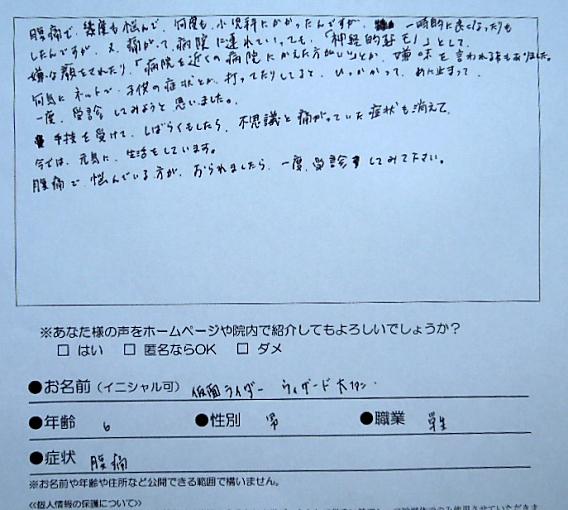 腹痛で、幾度も悩んで、何度も、小児科にかかったんですが、一時的に良くなったりも
したんですが、又、痛がって、病院に連れていっても、「神経的かも！」として、
嫌な顔をされたり、「病院を近くの病院にかえた方がいい」とか、嫌味を言われる時もありました。
何気にネットで、子供の症状とか、打ってたりしてると、ひっかかって、めに止まって、
一度、受診してみようと思いました。
手技を受けて、しばらくもしたら、不思議と痛がっていた症状も消えて、
今では、元気に、生活をしています。
腹痛で悩んでいる方が、おられましたら、一度、受診してみて下さい。
※あなた様の声をホームページや院内で紹介してもよろしいでしょうか?
□ はい □ 匿名ならOK □ ダメ
●お名前(イニシャル可) 仮面ライダー ウィザード大ファン
●年齢 6 ●性別 男 ●職業 学生
●症状 腹痛
※お名前や年齢や住所など公開できる範囲で構いません。
≪個人情報の保護について≫